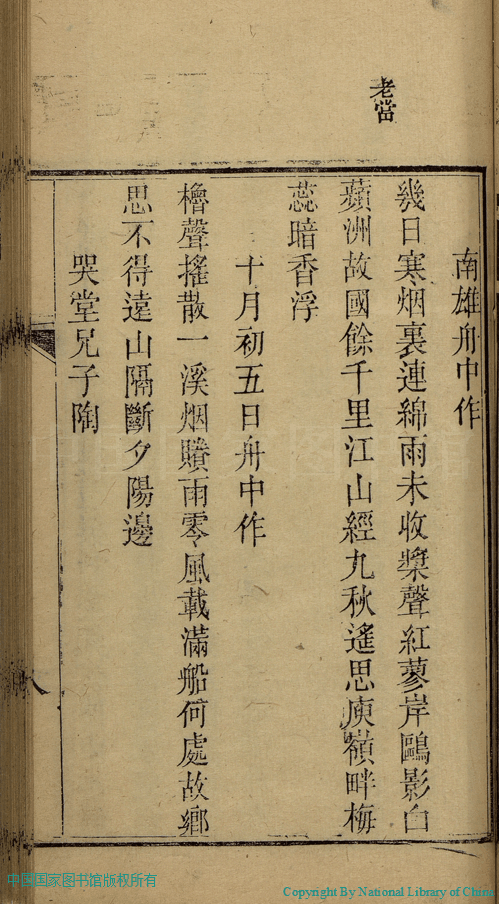 老當
南雄舟中作
幾日寒烟裏連綿雨未收槳聲紅蓼岸鷗影白
蘋洲故國餘千里江山經九秋遙思庾嶺畔梅
蕊暗香浮
十月初五日舟中作
櫓聲搖散一溪烟賸雨零風載滿船何處故鄉
思不得遠山隔斷夕陽邊
哭堂兄子陶
八
中国国家图书馆版权所有
Copyright By National Library of China